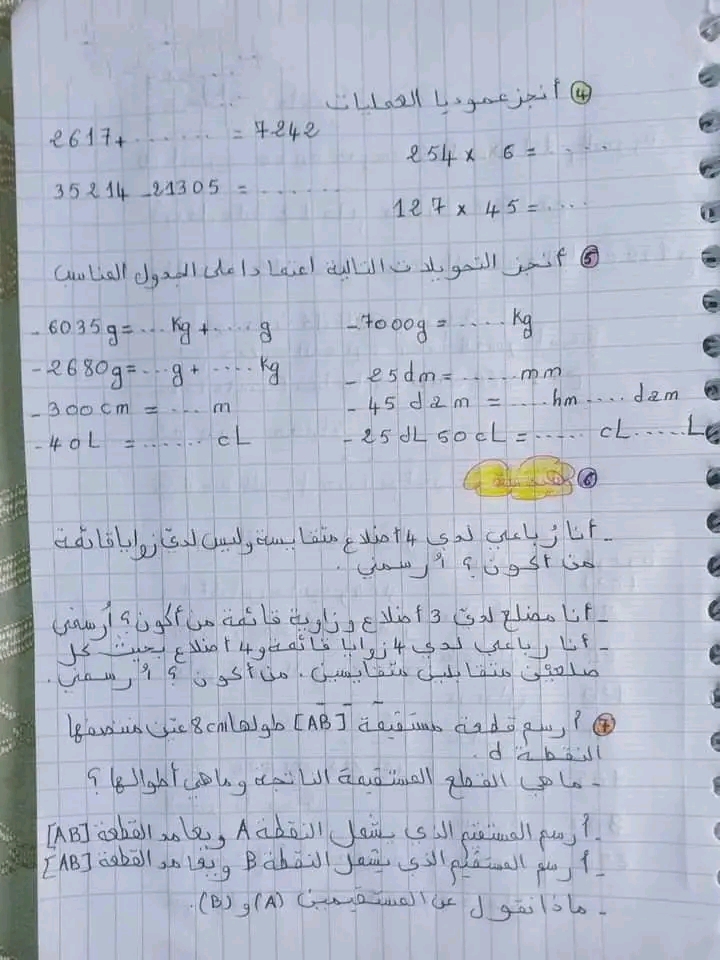 ④ أنجز عموديا العمليات
2617+ ........ = 7242
254 x 6 = .....
35214 - 21305 = .......
127 x 45 = ....
⑤ أنجز التحويلات التالية اعتمادا على الجدول المناسب
- 6035g = .... Kg + ..... g
- 7000g = ..... Kg
- 2680g = ... g + ..... Kg
- 25dm = ....... mm
- 300 cm = .... m
- 45 dam = .....hm .... dam
- 40L = ....... cL
- 25 dL 50 cL = ..... cL .....L
⑥
- أنا رباعي لدي 4 أضلاع متقايسة وليس لديّ زوايا قائمة
من أكون ؟ أرسمني .
- أنا مضلع لديّ 3 أضلاع وزاوية قائمة من أكون ؟ أرسمني
- أنا رباعي لدي 4 زوايا قائمة و 4 أضلاع بحيث كل
ضلعين متقابلين متقايسين. من أكون ؟ أرسمني.
⑦ أرسم قطعة مستقيمة [AB] طولها 8cm عيّن منتصفها
النقطة d.
- ما هي القطع المستقيمة الناتجة وماهي أطوالها ؟
- أرسم المستقيم الذي يشمل النقطة A ويعامد القطعة [AB]
- أرسم المستقيم الذي يشمل النقطة B ويعامد القطعة [AB]
- ماذا نقول عن المستقيمين (A) و (B).